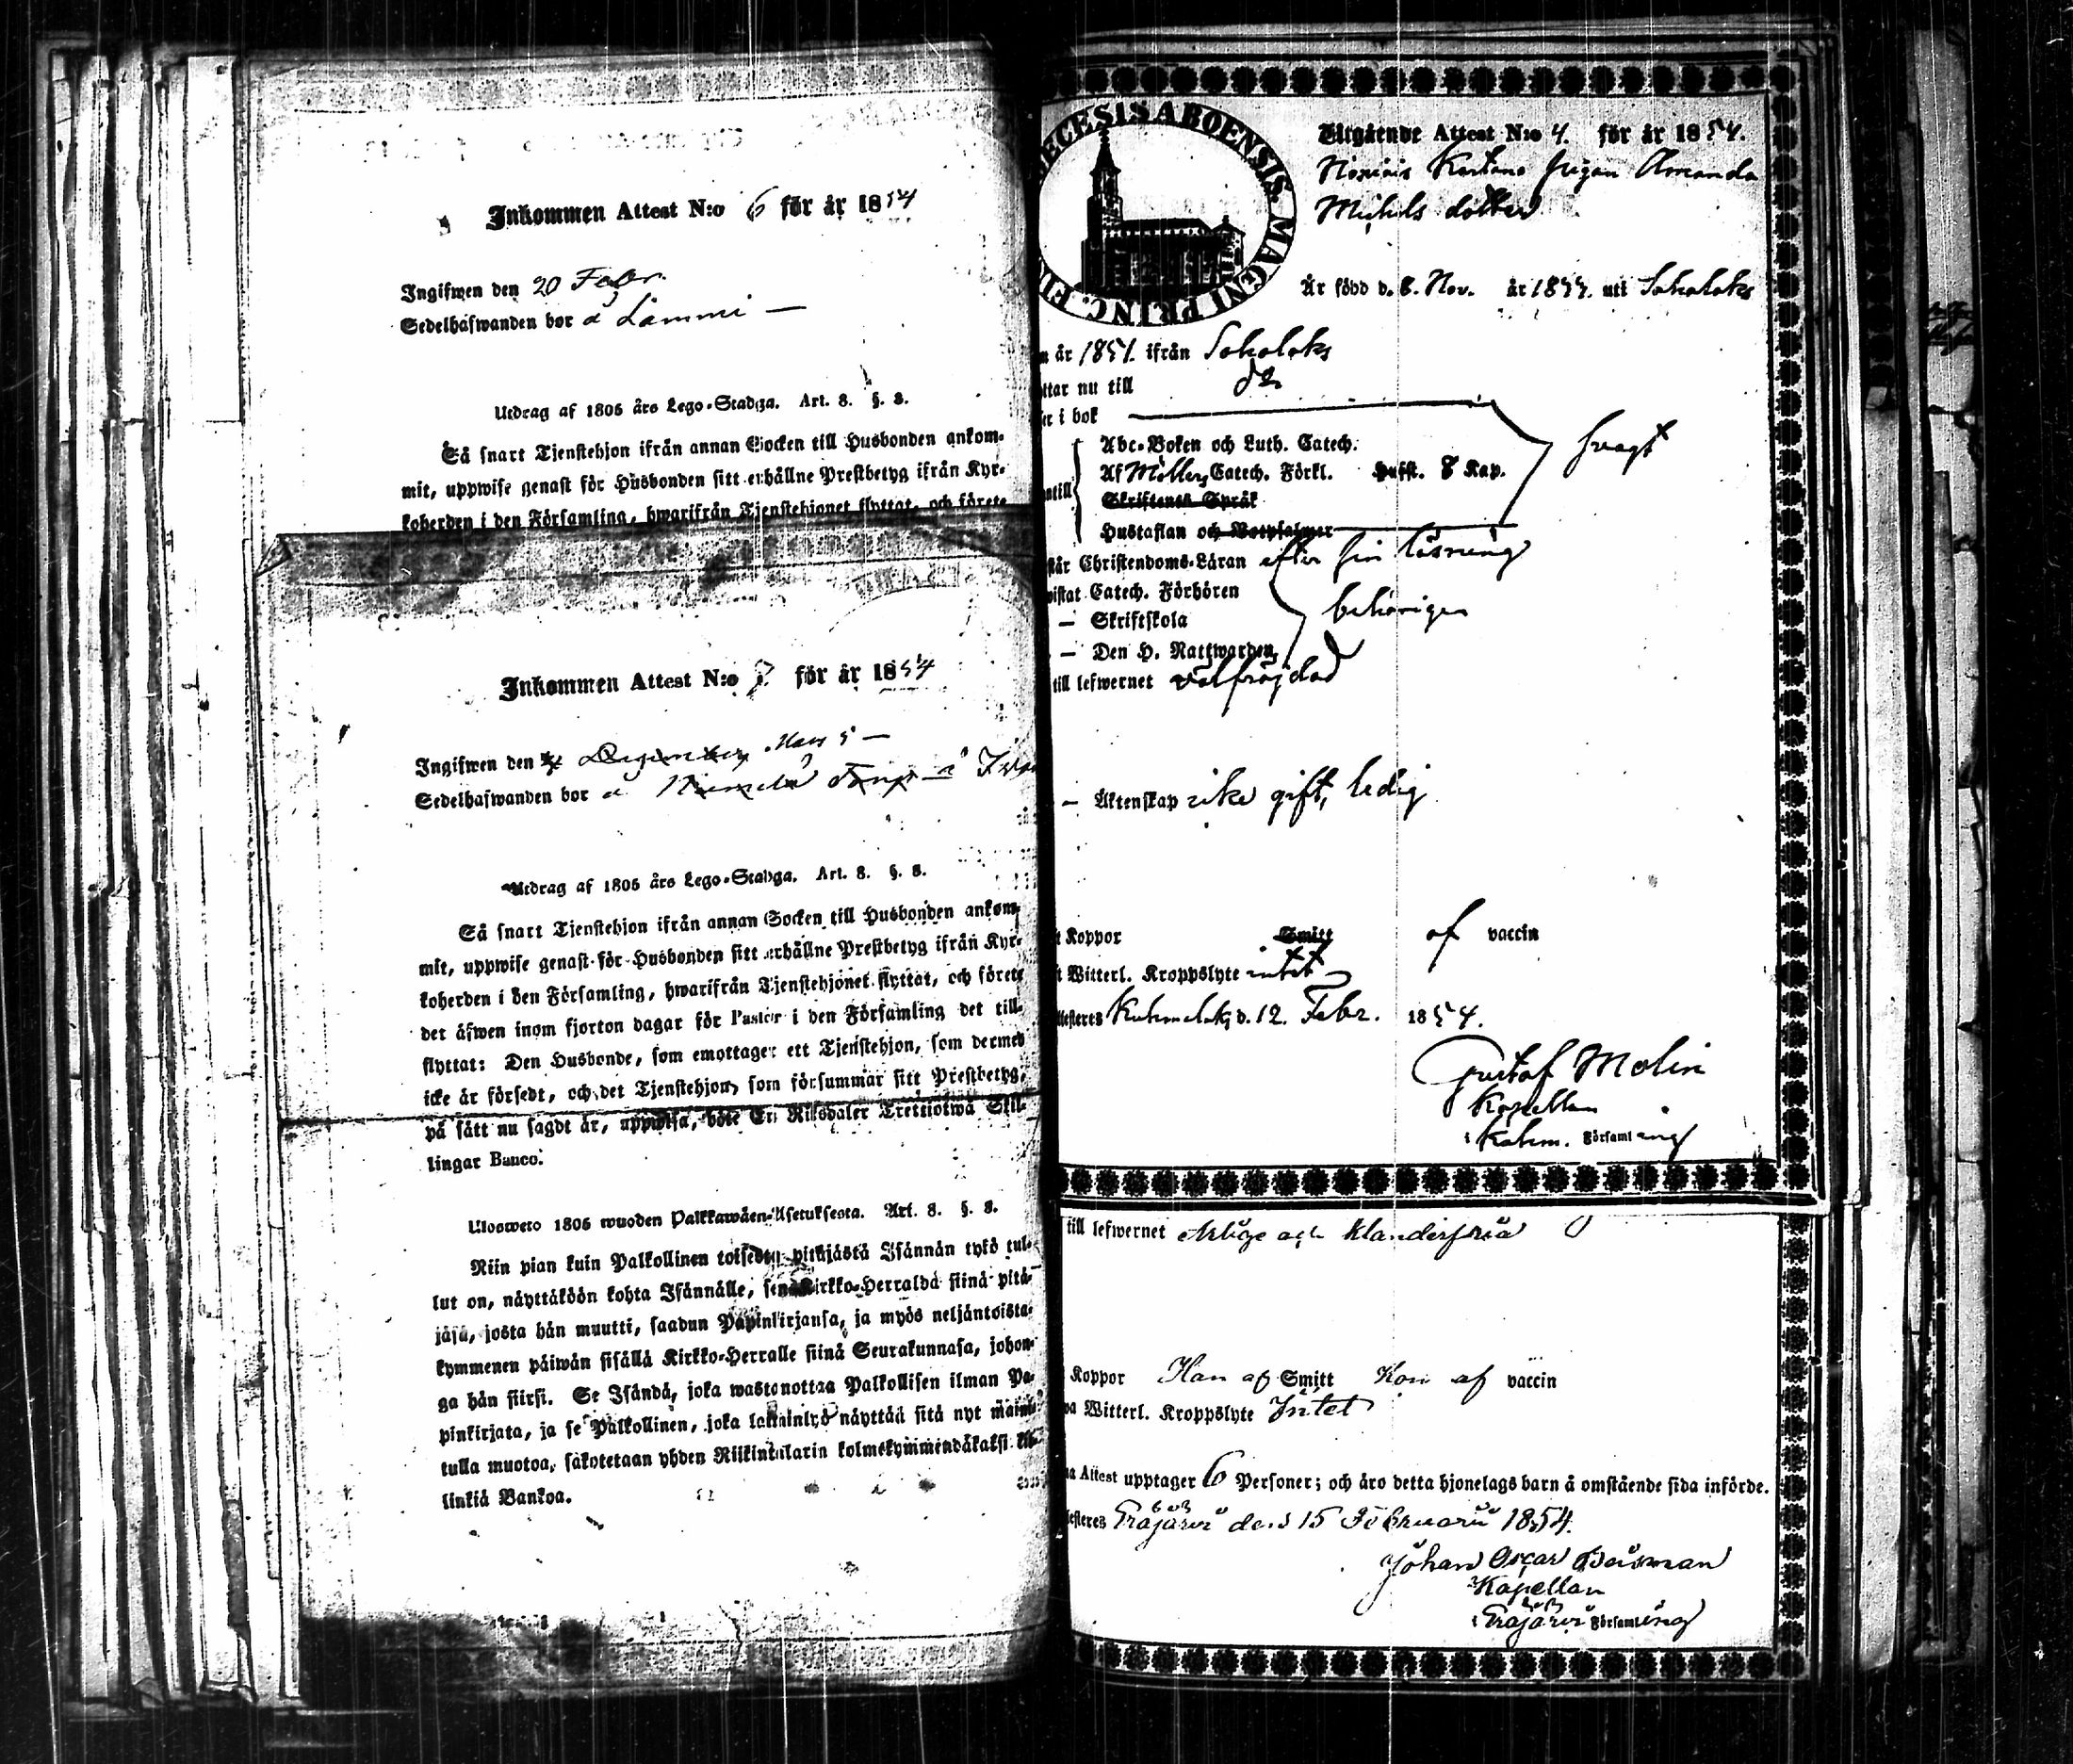 Inkommen Attest N:o 6 för år 1854
Ingifwen den 20 Febr.
Sedelhafwanden bor å Lammi —
Utdrag af 1805 års Lego-Stadga. Art. 8. §. 8.
Så snart Tjenstehjon ifrån annan Socken till Husbonden ankom-
mit, uppwise genast för Husbonden sitt erhållne Prestbetyg ifrån Kyr-
koherden i den Församling, hwarifrån Tjenstehjonet flyttat, och förete
Inkommen Attest N:o 7 för år 1854
Ingifwen den Mars 5 —
Sedelhafwanden bor å
Utdrag af 1805 års Lego-Stadga. Art. 8. §. 8.
Så snart Tjenstehjon ifrån annan Socken till Husbonden ankom-
mit, uppwise genast för Husbonden sitt erhållne Prestbetyg ifrån Kyr-
koherden i den Församling, hwarifrån Tjenstehjonet flyttat, och förete
det äfwen inom fjorton dagar för Pastor i den Församling det till-
flyttat: Den Husbonde, som emottager ett Tjenstehjon, som dermed
icke är försedt, och det Tjenstehjon, som försummar sitt Prestbetyg,
på sätt nu sagdt är, uppwisa, böte En Riksdaler Trettiotwå Skil-
lingar Banco.
Ulosweto 1805 wuoden Palkkawäen-Asetuksesta. Art. 8. §. 8.
Niin pian kuin Palkollinen toisesta pitäjästä Isännän tykö tul-
lut on, näyttäköön kohta Isännälle, sen Kirkko-Herralda siinä pitä-
jäsä, josta hän muutti, saadun Papinkirjansa, ja myös neljäntoista-
kymmenen päiwän sisällä Kirkko-Herralle siinä Seurakunnasa, johon-
ga hän siirsi. Se Isändä, joka wastanottaa Palkollisen ilman Pa-
pinkirjata, ja se Palkollinen, joka laiminlyö näyttää sitä nyt maini-
tulla muotoa, sakotetaan yhden Riikintalarin kolmekymmendäkaksi kil-
linkiä Bankoa.
ECESIS ABOENSIS. MAGNI PRINC. FI
Utgående Attest N:o 4. för år 1854.
Kartano Pigan Amanda
Michels dotter
Är född d. 8. Nov. år uti Sahalaks
n år 1851. ifrån Sahalaks
ttar nu till do
er i bok
Abc-Boken och Luth. Catech.
Af Möllers Catech. Förkl. Hufst. 8 Kap. svagt
ntill
Skriftenes Språk
Hustaflan och Botpsalmer
står Christendoms-Läran efter sin läsning
wistat Catech. Förhören
— Skriftskola behörigen
— Den H. Nattwarden
till lefwernet välfrejdad
— Äktenskap icke gift, ledig
t Koppor Smitt af vaccin
t Witterl. Kroppslyte intet
llesteres Kuhmalaks d. 12. Febr. 1854.
Gustaf Molin
Kapellan
i Kuhm. Församling
till lefwernet ärlige och klanderfria
Koppor Han af Smitt Hon af vaccin
wa Witterl. Kroppslyte Intet
na Attest upptager 6 Personer; och äro detta hjonelags barn å omstående sida införde.
esteres Eräjärvi den 15 Februarii 1854.
Johan Oscar
Kapellan
i Eräjärvi Församling